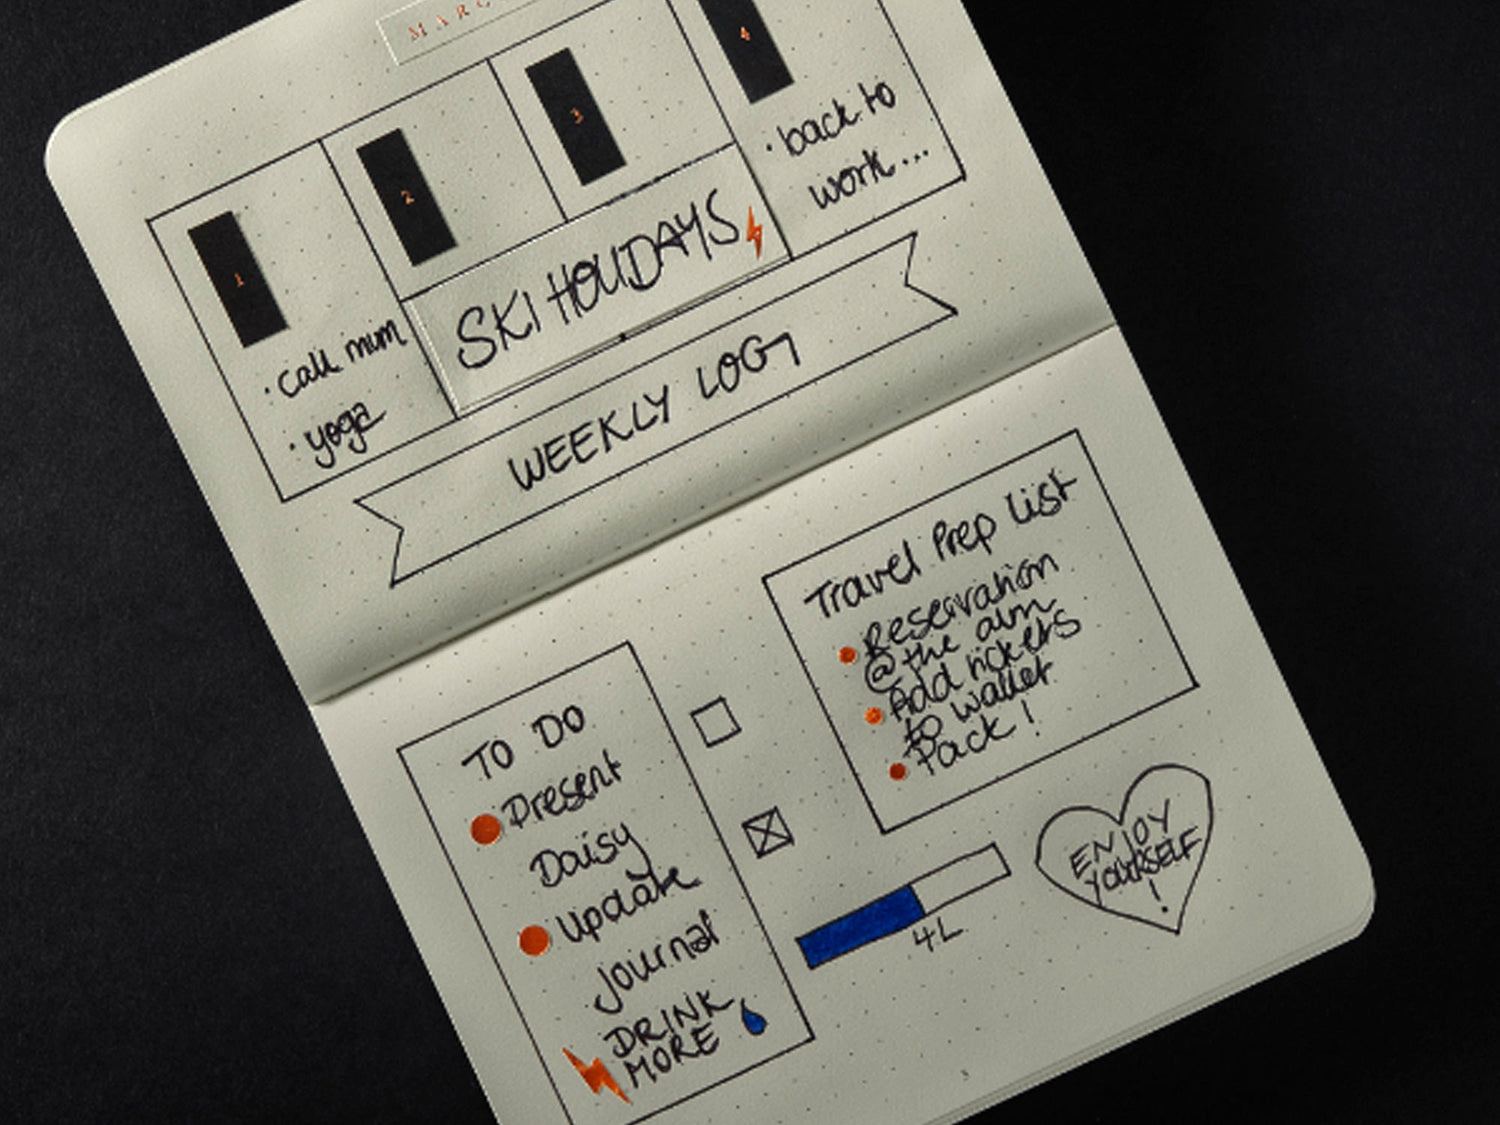 1
2
3
4
• call mum
• yoga
SKI HOLIDAYS
• back to
work...
WEEKLY LOG
TO DO
Present
Daisy
Update
Journal
DRINK
MORE
Travel Prep List
Reservation
@ the
Add tickets
to wallet
Pack!
4L
ENJOY
YOURSELF
!